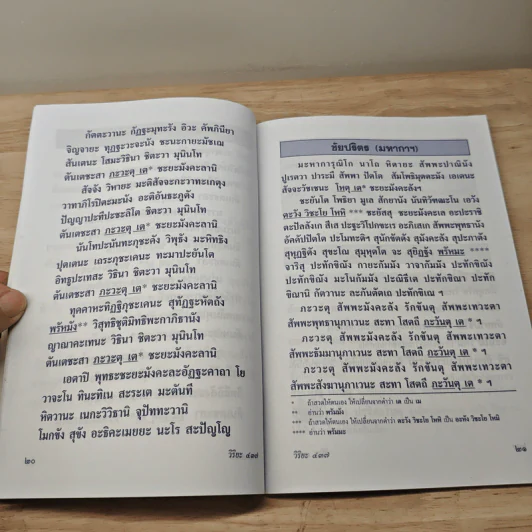 กัตตะวานะ กัฏฐะมุทะรัง อิวะ คัพภินียา
จิญจายะ ทุฏฐะวะจะนัง ชะนะกายะมัชเฌ
สันเตนะ โสมะวิธินา ชิตะวา มุนินโท
ตันเตชะสา ภะวะตุ เต* ชะยะมังคะลานิ
สัจจัง วิหายะ มะติสัจจะกะวาทะเกตุง
วาทาภิโรปิตะมะนัง อะติอันธะภูตัง
ปัญญาปะทีปะชะลิโต ชิตะวา มุนินโท
ตันเตชะสา ภะวะตุ เต* ชะยะมังคะลานิ
นันโทปะนันทะภุชะคัง วิพุธัง มะหิทธิง
ปุตเตนะ เถระภุชะเคนะ ทะมาปะยันโต
อิทธูปะเทสะ วิธินา ชิตะวา มุนินโท
ตันเตชะสา ภะวะตุ เต* ชะยะมังคะลานิ
ทุคคาหะทิฏฐิภุชะเคนะ สุทัฏฐะหัตถัง
พรัหมัง** วิสุทธิชุติมิทธิพะกาภิธานัง
ญาณาคะเทนะ วิธินา ชิตะวา มุนินโท
ตันเตชะสา ภะวะตุ เต* ชะยะมังคะลานิ
เอตาปิ พุทธะชะยะมังคะละอัฏฐะคาถา โย
วาจะโน ทินะทิเน สะระเต มะตันที
หิตวานะ เนกะวิวิธานิ จุปัททะวานิ
โมกขัง สุขัง อะธิคะเมยยะ นะโร สะปัญโญ
๒๐ วิริยะ ๔๓๗
ชัยปริตร (มหากาฯ)
มะหาการุณิโก นาโถ หิตายะ สัพพะปาณินัง
ปูเรตวา ปาระมี สัพพา ปัตโต สัมโพธิมุตตะมัง เอเตนะ
สัจจะวัชเชนะ โหตุ เต* ชะยะมังคะลังฯ
ชะยันโต โพธิยา มูเล สักยานัง นันทิวัฑฒะโน เอวัง
ตะวัง วิชะโย โหหิ *** ชะยัสสุ ชะยะมังคะเล อะปะราชิ
ตะปัลลังเก สีเส ปะฐะวิโปกขะเร อะภิเสเก สัพพะพุทธานัง
อัคคัปปัตโต ปะโมทะติฯ สุนักขัตตัง สุมังคะลัง สุปะภาตัง
สุหุฏฐิตัง สุขะโณ สุมุหุตโต จะ สุยิฏฐัง พรัหมะ ****
จาริสุ ปะทักขิณัง กายะกัมมัง วาจากัมมัง ปะทักขิณัง
ปะทักขิณัง มะโนกัมมัง ปะณิธีเต ปะทักขิณา ปะทัก
ขิณานิ กัตวานะ ละภันตัตเถ ปะทักขิเณ ฯ
ภะวะตุ สัพพะมังคะลัง รักขันตุ สัพพะเทวะตา
สัพพะพุทธานุภาเวนะ สะทา โสตถี ภะวันตุ เต * ฯ
ภะวะตุ สัพพะมังคะลัง รักขันตุ สัพพะเทวะตา
สัพพะธัมมานุภาเวนะ สะทา โสตถี ภะวันตุ เต * ฯ
ภะวะตุ สัพพะมังคะลัง รักขันตุ สัพพะเทวะตา
สัพพะสังฆานุภาเวนะ สะทา โสตถี ภะวันตุ เต * ฯ
* ถ้าสวดให้ตนเอง ให้เปลี่ยนจากคำว่า เต เป็น เม
** อ่านว่า พรัมมัง
*** ถ้าสวดให้ตนเอง ให้เปลี่ยนจากคำว่า ตะวัง วิชะโย โหหิ เป็น อะหัง วิชะโย โหมิ
**** อ่านว่า พรัมมะ
วิริยะ ๔๓๗ ๒๑